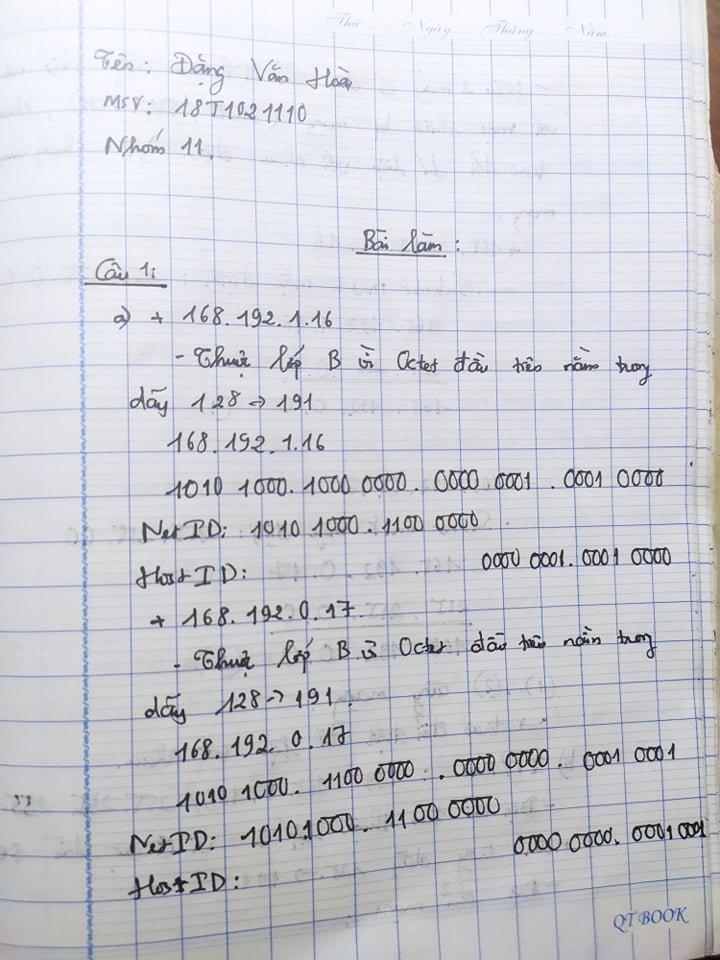 Thứ........Ngày........Tháng........Năm........
Tên: Đặng Văn Hoà
MSV: 18T1021110
Nhóm 11.
Bài làm:
Câu 1:
a) + 168.192.1.16
- Thuộc lớp B vì Octet đầu tiên nằm trong
dãy 128 → 191
168.192.1.16
1010 1000. 1000 0000. 0000 0001. 0001 0000
NetID: 1010 1000. 1100 0000
HostID: 0000 0001. 0001 0000
+ 168.192.0.17.
- Thuộc lớp B vì Octet đầu tiên nằm trong
dãy 128 → 191.
168.192.0.17
1010 1000. 1100 0000. 0000 0000. 0001 0001
NetID: 1010 1000. 1100 0000
HostID: 0000 0000. 0001 0001
QT BOOK